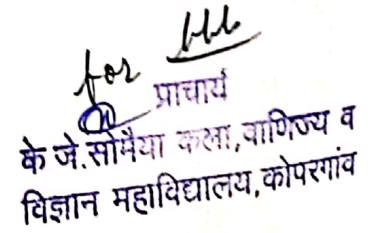 for
प्राचार्य
के जे.सोमैया कला,वाणिज्य व
विज्ञान महाविद्यालय,कोपरगांव